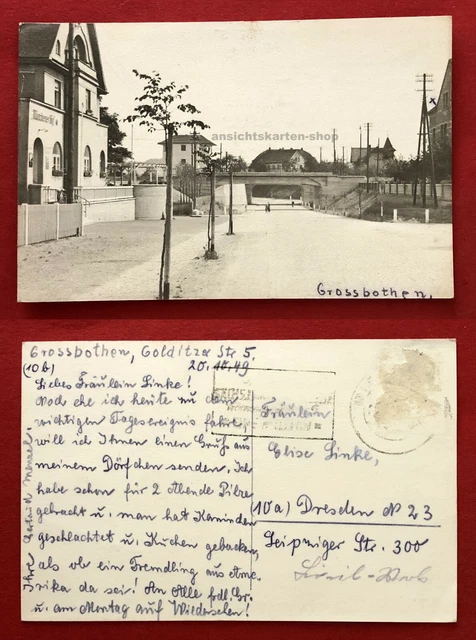 ansichtskarten-shop
x
Grossbothen.
Grossbothen, Golditzer Str 5.
(10b) 20.10.49
Liebes Fräulein Linke!
Noch ehe ich heute zu dem
wichtigen Tagesereignis fahre,
will ich Ihnen einen Gruß aus
meinem Dörfchen senden. Ich
habe schon für 2 Abende Pilze
gebracht u. man hat Kaninchen
geschlachtet u. Kuchen gebacken,
als ob ein Fremdling aus Ame-
rika da sei! An Alle frdl. Gr.
u. am Montag auf Wiedersehen!
Ihre Gertrud Menzel.
Fräulein
Elise Linke,
(10a) Dresden N 23
Leipziger Str. 300